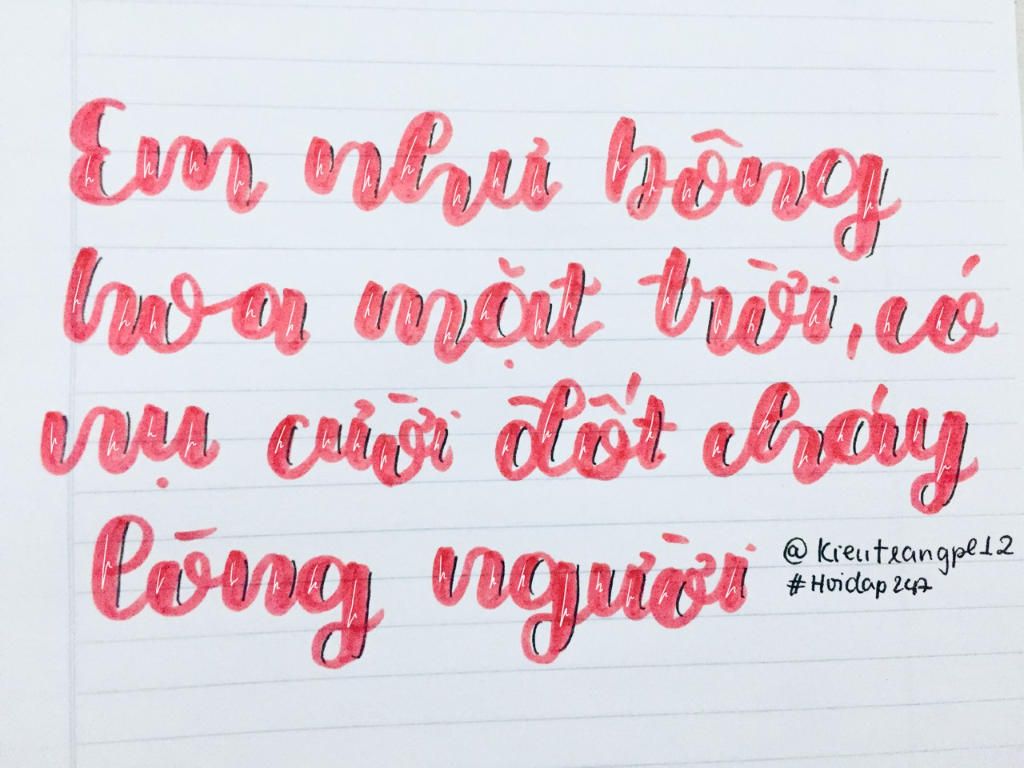 Em như bông
hoa mặt trời, có
nụ cười đốt cháy
lòng người
@kieutrangpl12
#Hoidap247